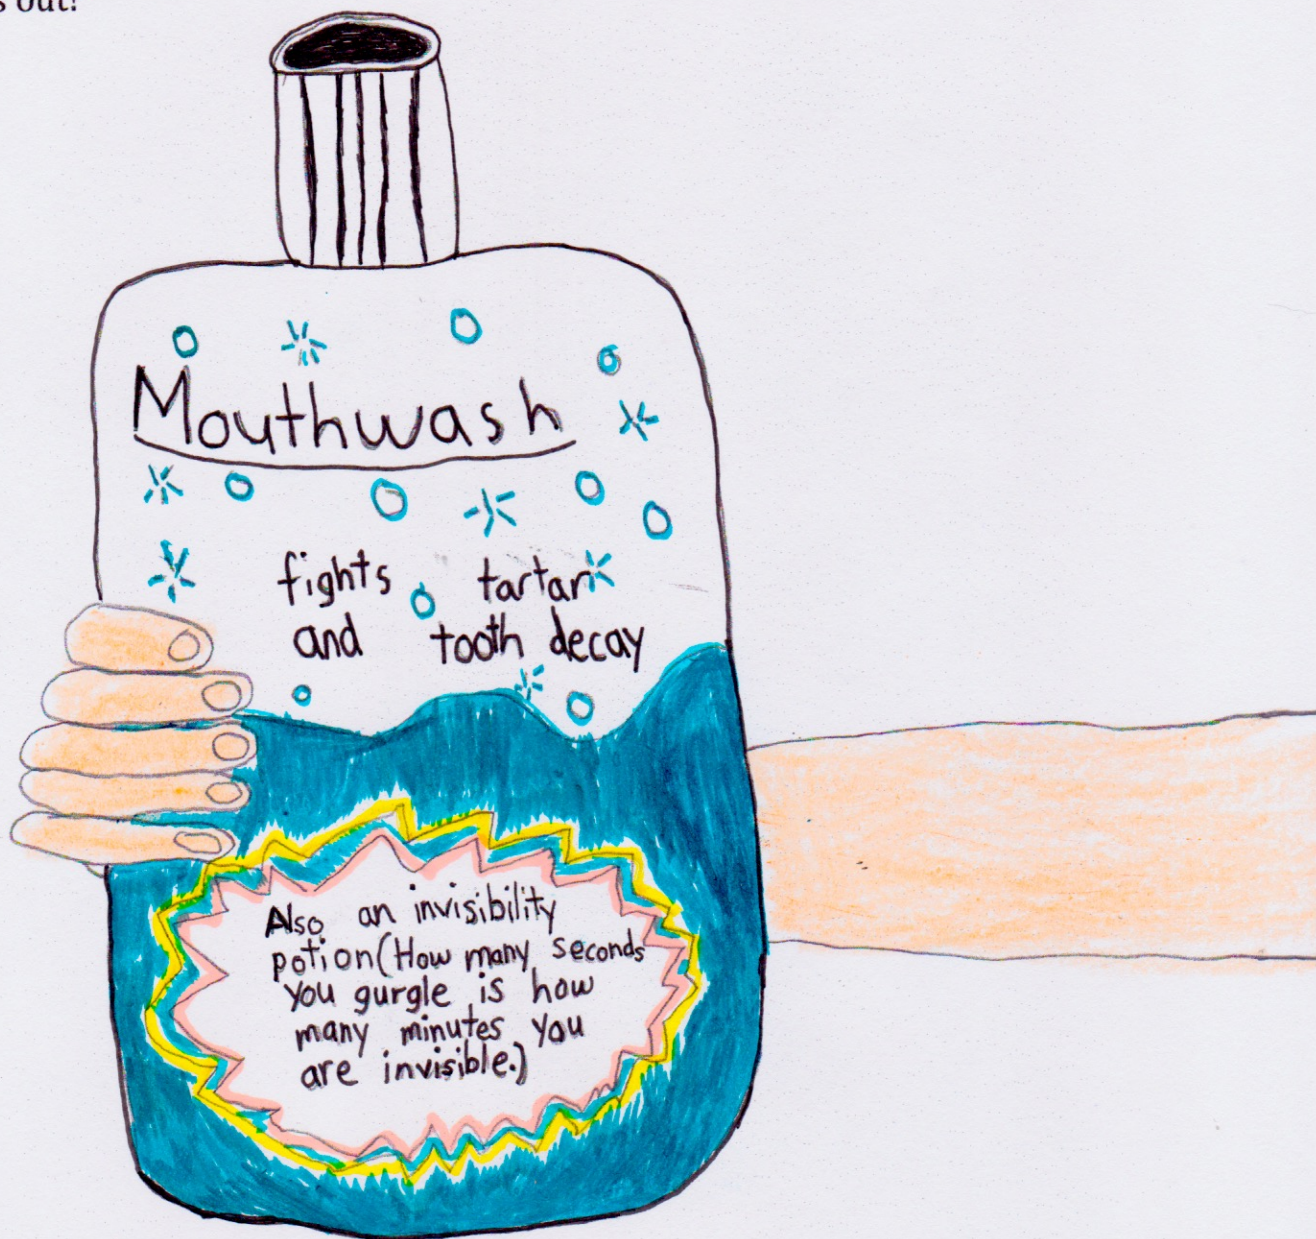 s out!
Mouthwash
fights tartar
and tooth decay
Also an invisibility
potion(How many seconds
you gurgle is how
many minutes you
are invisible.)